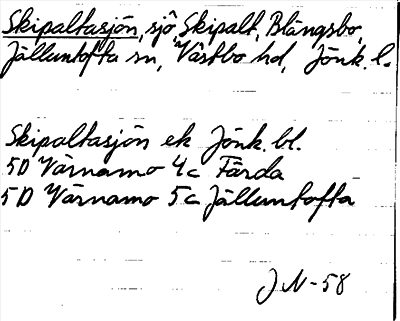 Skipaltasjön, sjö, Skipalt, Blängsbo,
Jälluntofta sn, Västbo hd, Jönk. l.
Skipaltasjön ek Jönk. bl.
5D Värnamo 4c Färda
5D Värnamo 5c Jälluntofta
J N-58